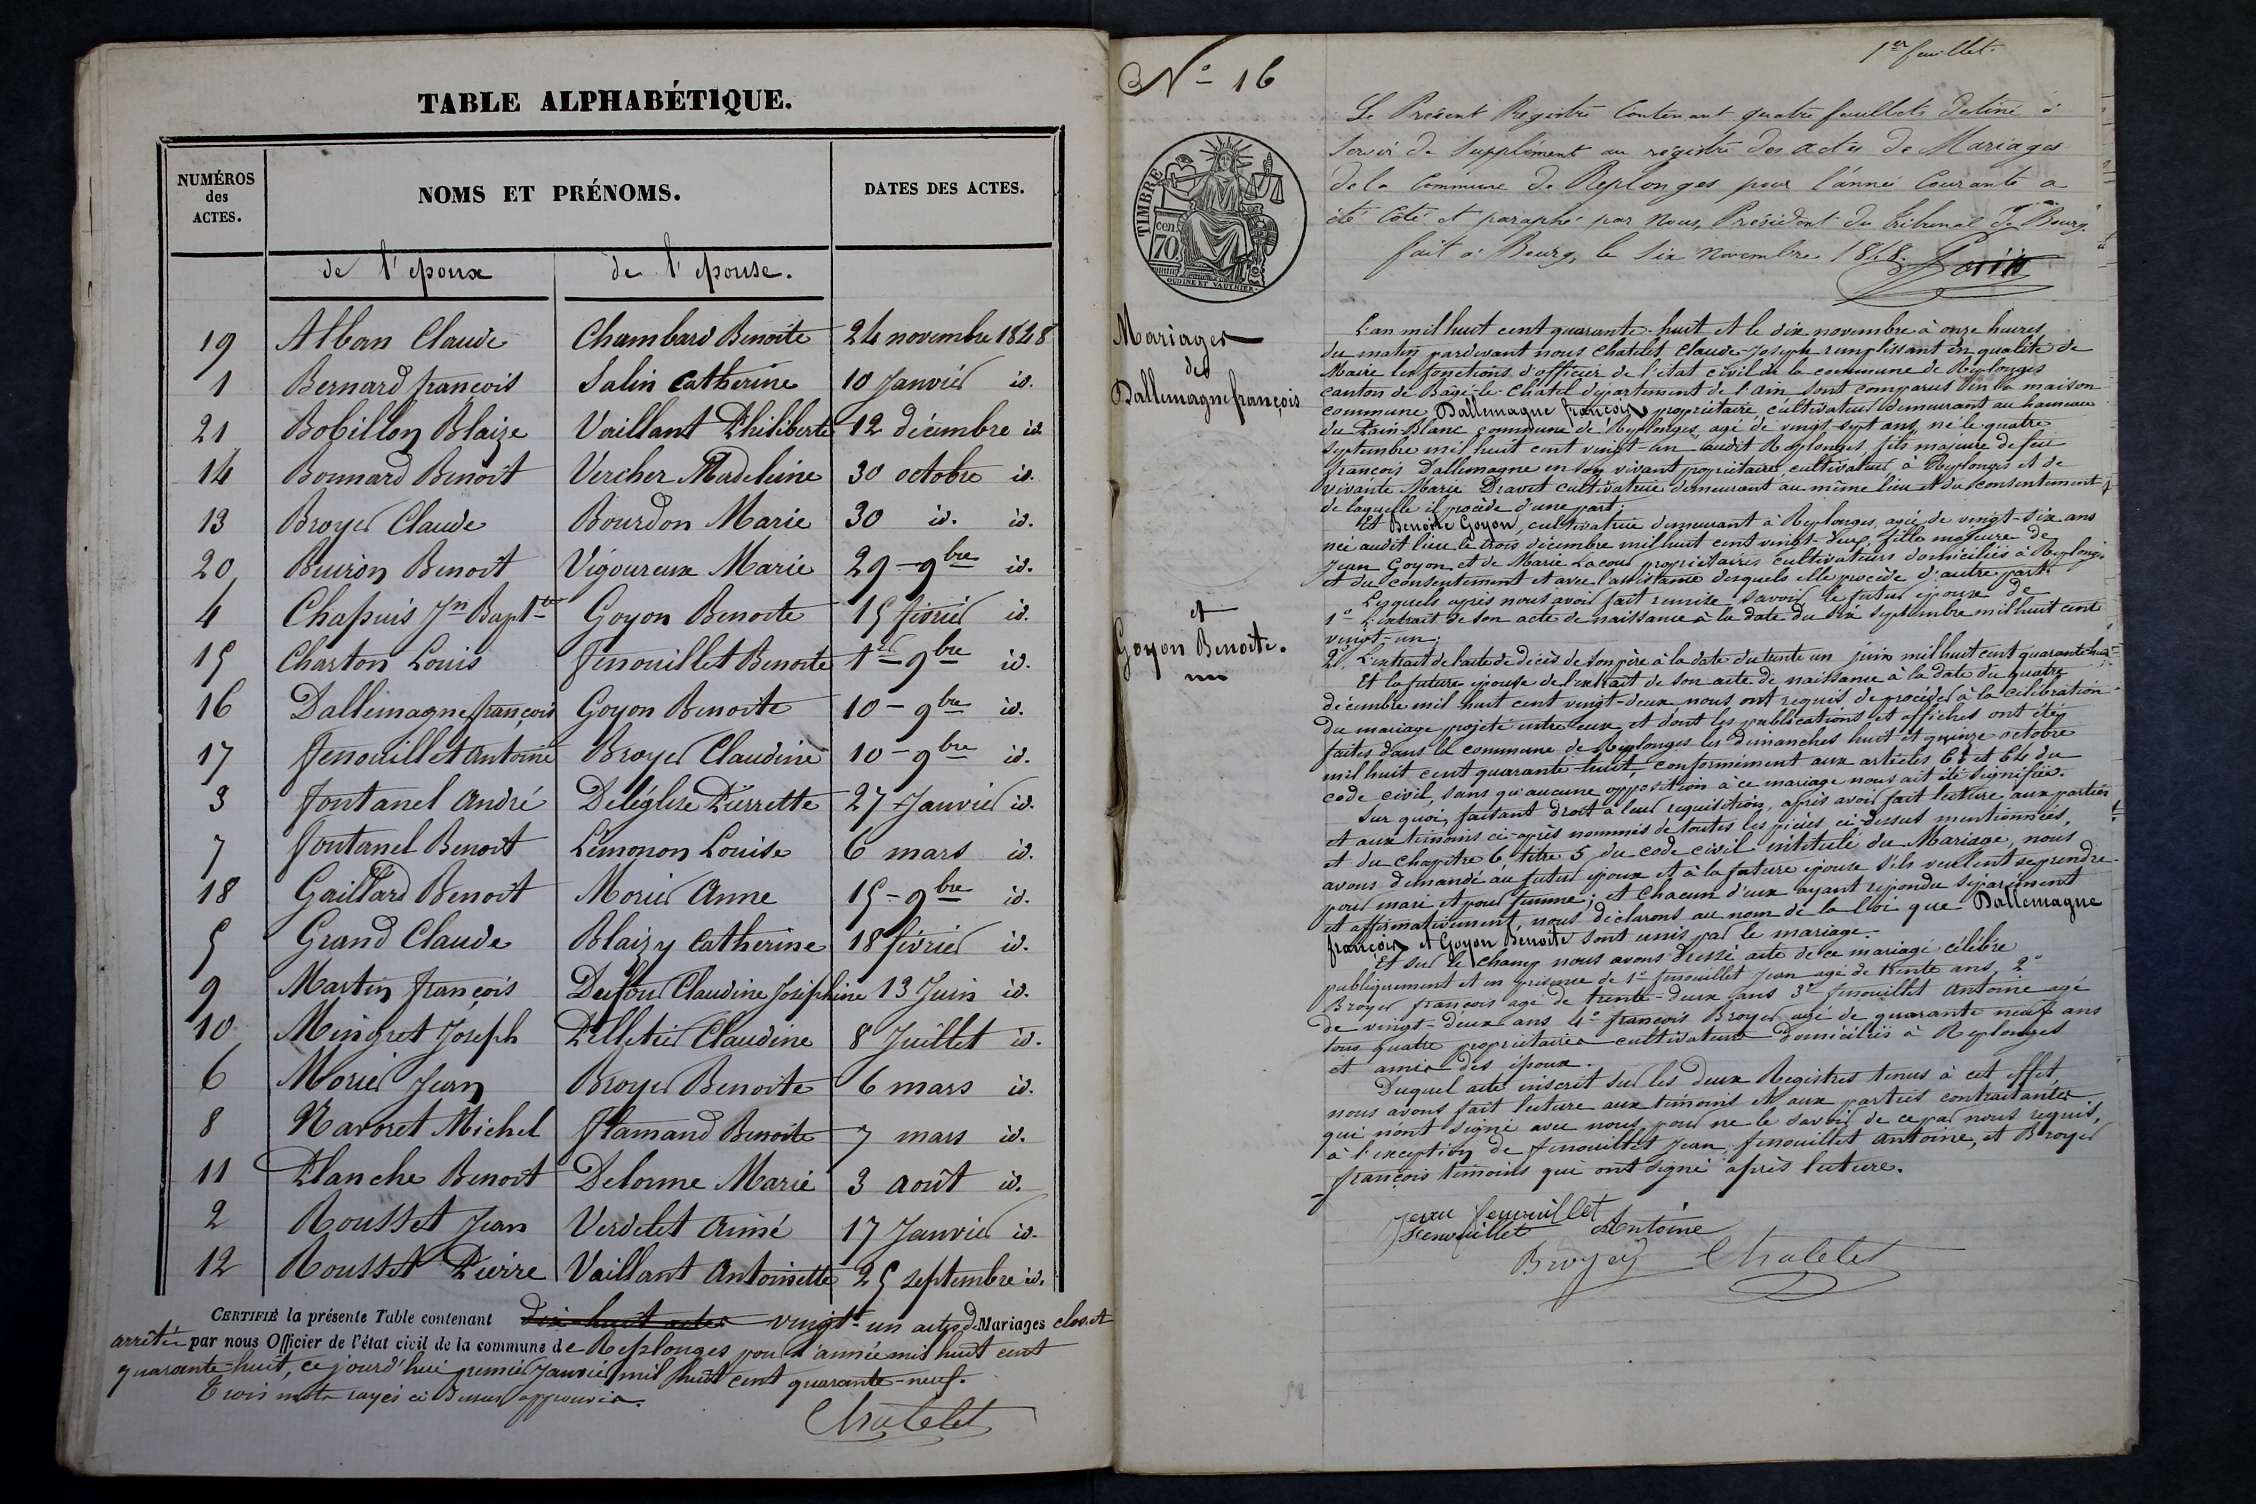 TABLE ALPHABÉTIQUE.
NUMÉROS des ACTES.
NOMS ET PRÉNOMS.
DATES DES ACTES.
de l'epoux de l'epouse.
19 Alban Claude Chambard Benoite 24 novembre 1848
1 Bernard françois Salin Catherine 10 Janvier id.
21 Bobillon Blaize Vaillant Philiberte 12 décembre id.
14 Bonnard Benoît Vercher Madeleine 30 octobre id.
13 Broyer Claude Bourdon Marie 30 id. id.
20 Buiron Benoit Vigoureux Marie 29 - 9bre id.
4 Chapuis Jn Bapt-te Goyon Benoite 15 février id.
15 Charton Louis fenouillet Benoite 1er 9bre id.
16 Dallemagne françois Goyon Benoite 10 - 9bre id.
17 fenouillet Antoine Broyer Claudine 10 - 9bre id.
3 fontanel André Deléglise Pierrette 27 Janvier id.
7 fontanel Benoît Lémonon Louise 6 mars id.
18 Gaillard Benoit Morier Anne 15 - 9bre id.
5 Grand Claude Blaizy Catherine 18 février id.
9 Martin françois Dufour Claudine Joséphine 13 Juin id.
10 Mingret Joseph Pelletier Claudine 8 Juillet id.
6 Morier Jean Broyer Benoite 6 mars id.
8 Navoret Michel flamand Benoite 7 mars id.
11 Planche Benoit Delorme Marie 3 août id.
2 Rousset Jean Verdelet Aimé 17 Janvier id.
12 Rousset Pierre Vaillant Antoinette 25 septembre id.
CERTIFIÉ la présente Table contenant dix-huit actes vingt-un actes de Mariages clos et
arrêtée par nous Officier de l'état civil de la commune de Replonges pour l'année mil huit cent
quarante-huit, ce jourd'hui premier Janvier mil huit cent quarante-neuf.
Trois mots rayés ci dessus approuvés.
Chatelet
1er feuillet.
N° 16
Le Présent Régistre Contenant quatre feuillets destiné à
servir de Supplément au régistre des actes de Mariages
de la Commune de Replonges pour l'année Courante a
été Coté et paraphé par Nous, Président du tribunal de Bourg.
fait à Bourg, le Six Novembre 1848.
TIMBRE
70 cen.
OUDINÉ ET VAUTHIER.
Mariages
des
Dallemagne françois
et
Goyon Benoite.
L'an mil huit cent quarante-huit et le dix novembre à onze heures
du matin pardevant nous Chatelet Claude-Joseph remplissant en qualité de
Maire les fonctions d'officier de l'état civil de la commune de Replonges
canton de Bâgé-le-Chatel département de l'Ain sont comparus en la maison
commune Dallemagne françois, propriétaire cultivateur demeurant au hameau
du Pain-Blanc commune de Replonges, agé de vingt-sept ans, né le quatre
septembre mil huit cent vingt-un audit Replonges, fils majeure de feu
françois Dallemagne en son vivant propriétaire cultivateur à Replonges et de
vivante Marie Dravet cultivatrice demeurant au même lieu et du consentement
de laquelle il procède d'une part;
Et Benoite Goyon, cultivatrice demeurant à Replonges, agée de vingt-six ans
née audit lieu le trois décembre mil huit cent vingt-deux, fille majeure de
Jean Goyon et de Marie Lacour propriétaires cultivateurs domiciliés à Replonges
et du consentement et avec l'assistance desquels elle procède d'autre part.
Lesquels après nous avoir fait remise savoir le futur époux de
1° L'extrait de son acte de naissance à la date du six septembre mil huit cent
vingt-un;
2° L'extrait de l'acte de décès de son père à la date du trente un juin mil huit cent quarante-huit
Et la future épouse de l'extrait de son acte de naissance à la date du quatre
décembre mil huit cent vingt-deux nous ont requis de procéder à la célébration
du mariage projeté entre eux et dont les publications et affiches ont été
faites dans la commune de Replonges les dimanches huit et quinze octobre
mil huit cent quarante-huit, conformément aux articles 63 et 64 du
code civil, sans qu'aucune opposition à ce mariage nous ait été signifiée.
Sur quoi, faisant droit à leur réquisition, après avoir fait lecture aux parties
et aux témoins ci-après nommés de toutes les pièces ci-dessus mentionnées,
et du chapitre 6 titre 5 du code civil intitulé du Mariage, nous
avons demandé au futur époux et à la future épouse s'ils veulent se prendre
pour mari et pour femme; et chacun d'eux ayant répondu séparément
et affirmativement, nous déclarons au nom de la loi que Dallemagne
françois et Goyon Benoite sont unis par le mariage.
Et sur le champ nous avons dressé acte de ce mariage célébré
publiquement et en présence de 1° fenouillet Jean agé de trente ans, 2°
Broyer françois agé de trente-deux ans 3° fenouillet Antoine agé
de vingt-deux ans 4° françois Broyer agé de quarante neuf ans
tous quatre propriétaires cultivateurs domiciliés à Replonges
et amis des époux.
Duquel acte inscrit sur les deux Registres tenus à cet effet,
nous avons fait lecture aux témoins et aux parties contractantes
qui n'ont signé avec nous pour ne le savoir de ce par nous requis,
à l'exception de fenouillet Jean, fenouillet Antoine, et Broyer
françois témoins qui ont signé après lecture.
Jean fenouillet
Fenouillet Antoine
Broyer Chatelet